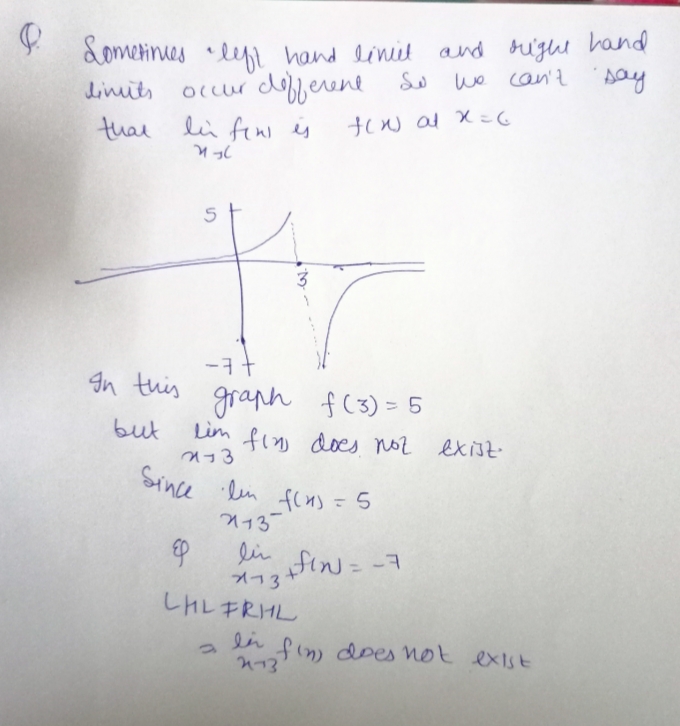 Q. Sometimes left hand limit and right hand
limits occur different so we can't say
that lim f(x) is f(x) at x=c
x→c
5
3
-7
In this graph f(3) = 5
but lim f(x) does not exist.
x→3
Since lim f(x) = 5
x→3⁻
& lim f(x) = -7
x→3⁺
LHL ≠ RHL
⇒ lim f(x) does not exist
x→3